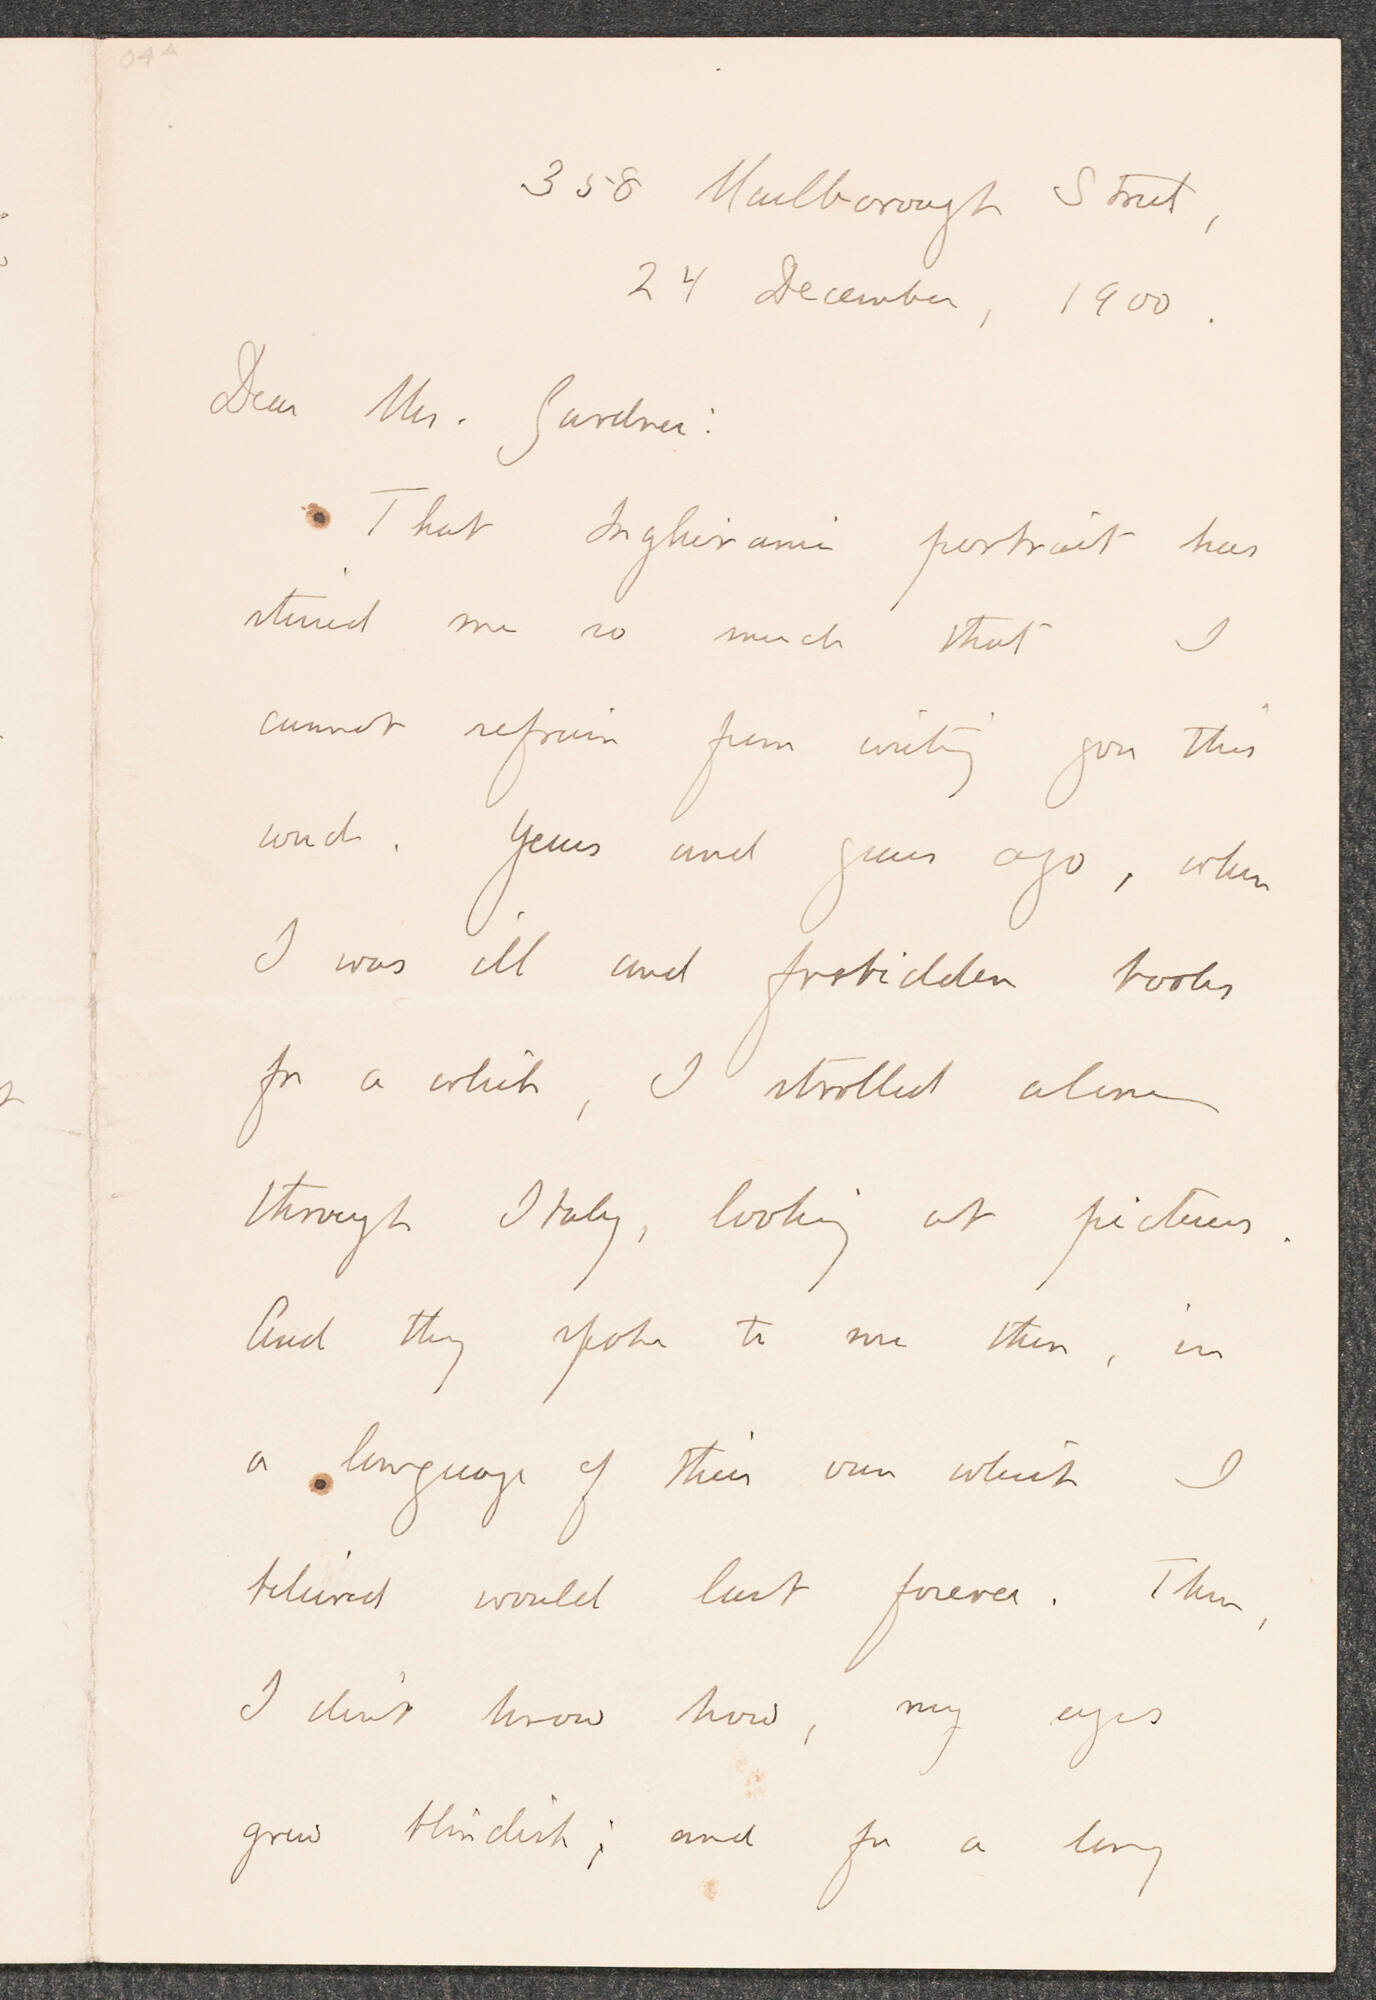 358 Marlborough Street,
24 December, 1900.
Dear Mrs. Gardner:
That Inghirami portrait has
stirred me so much that I
cannot refrain from writing you this
word. Years and years ago, when
I was ill and forbidden books
for a while, I strolled alone
through Italy, looking at pictures.
And they spoke to me then, in
a language of their own which I
believed would last forever. Then,
I don't know how, my eyes
grew blindish; and for a long